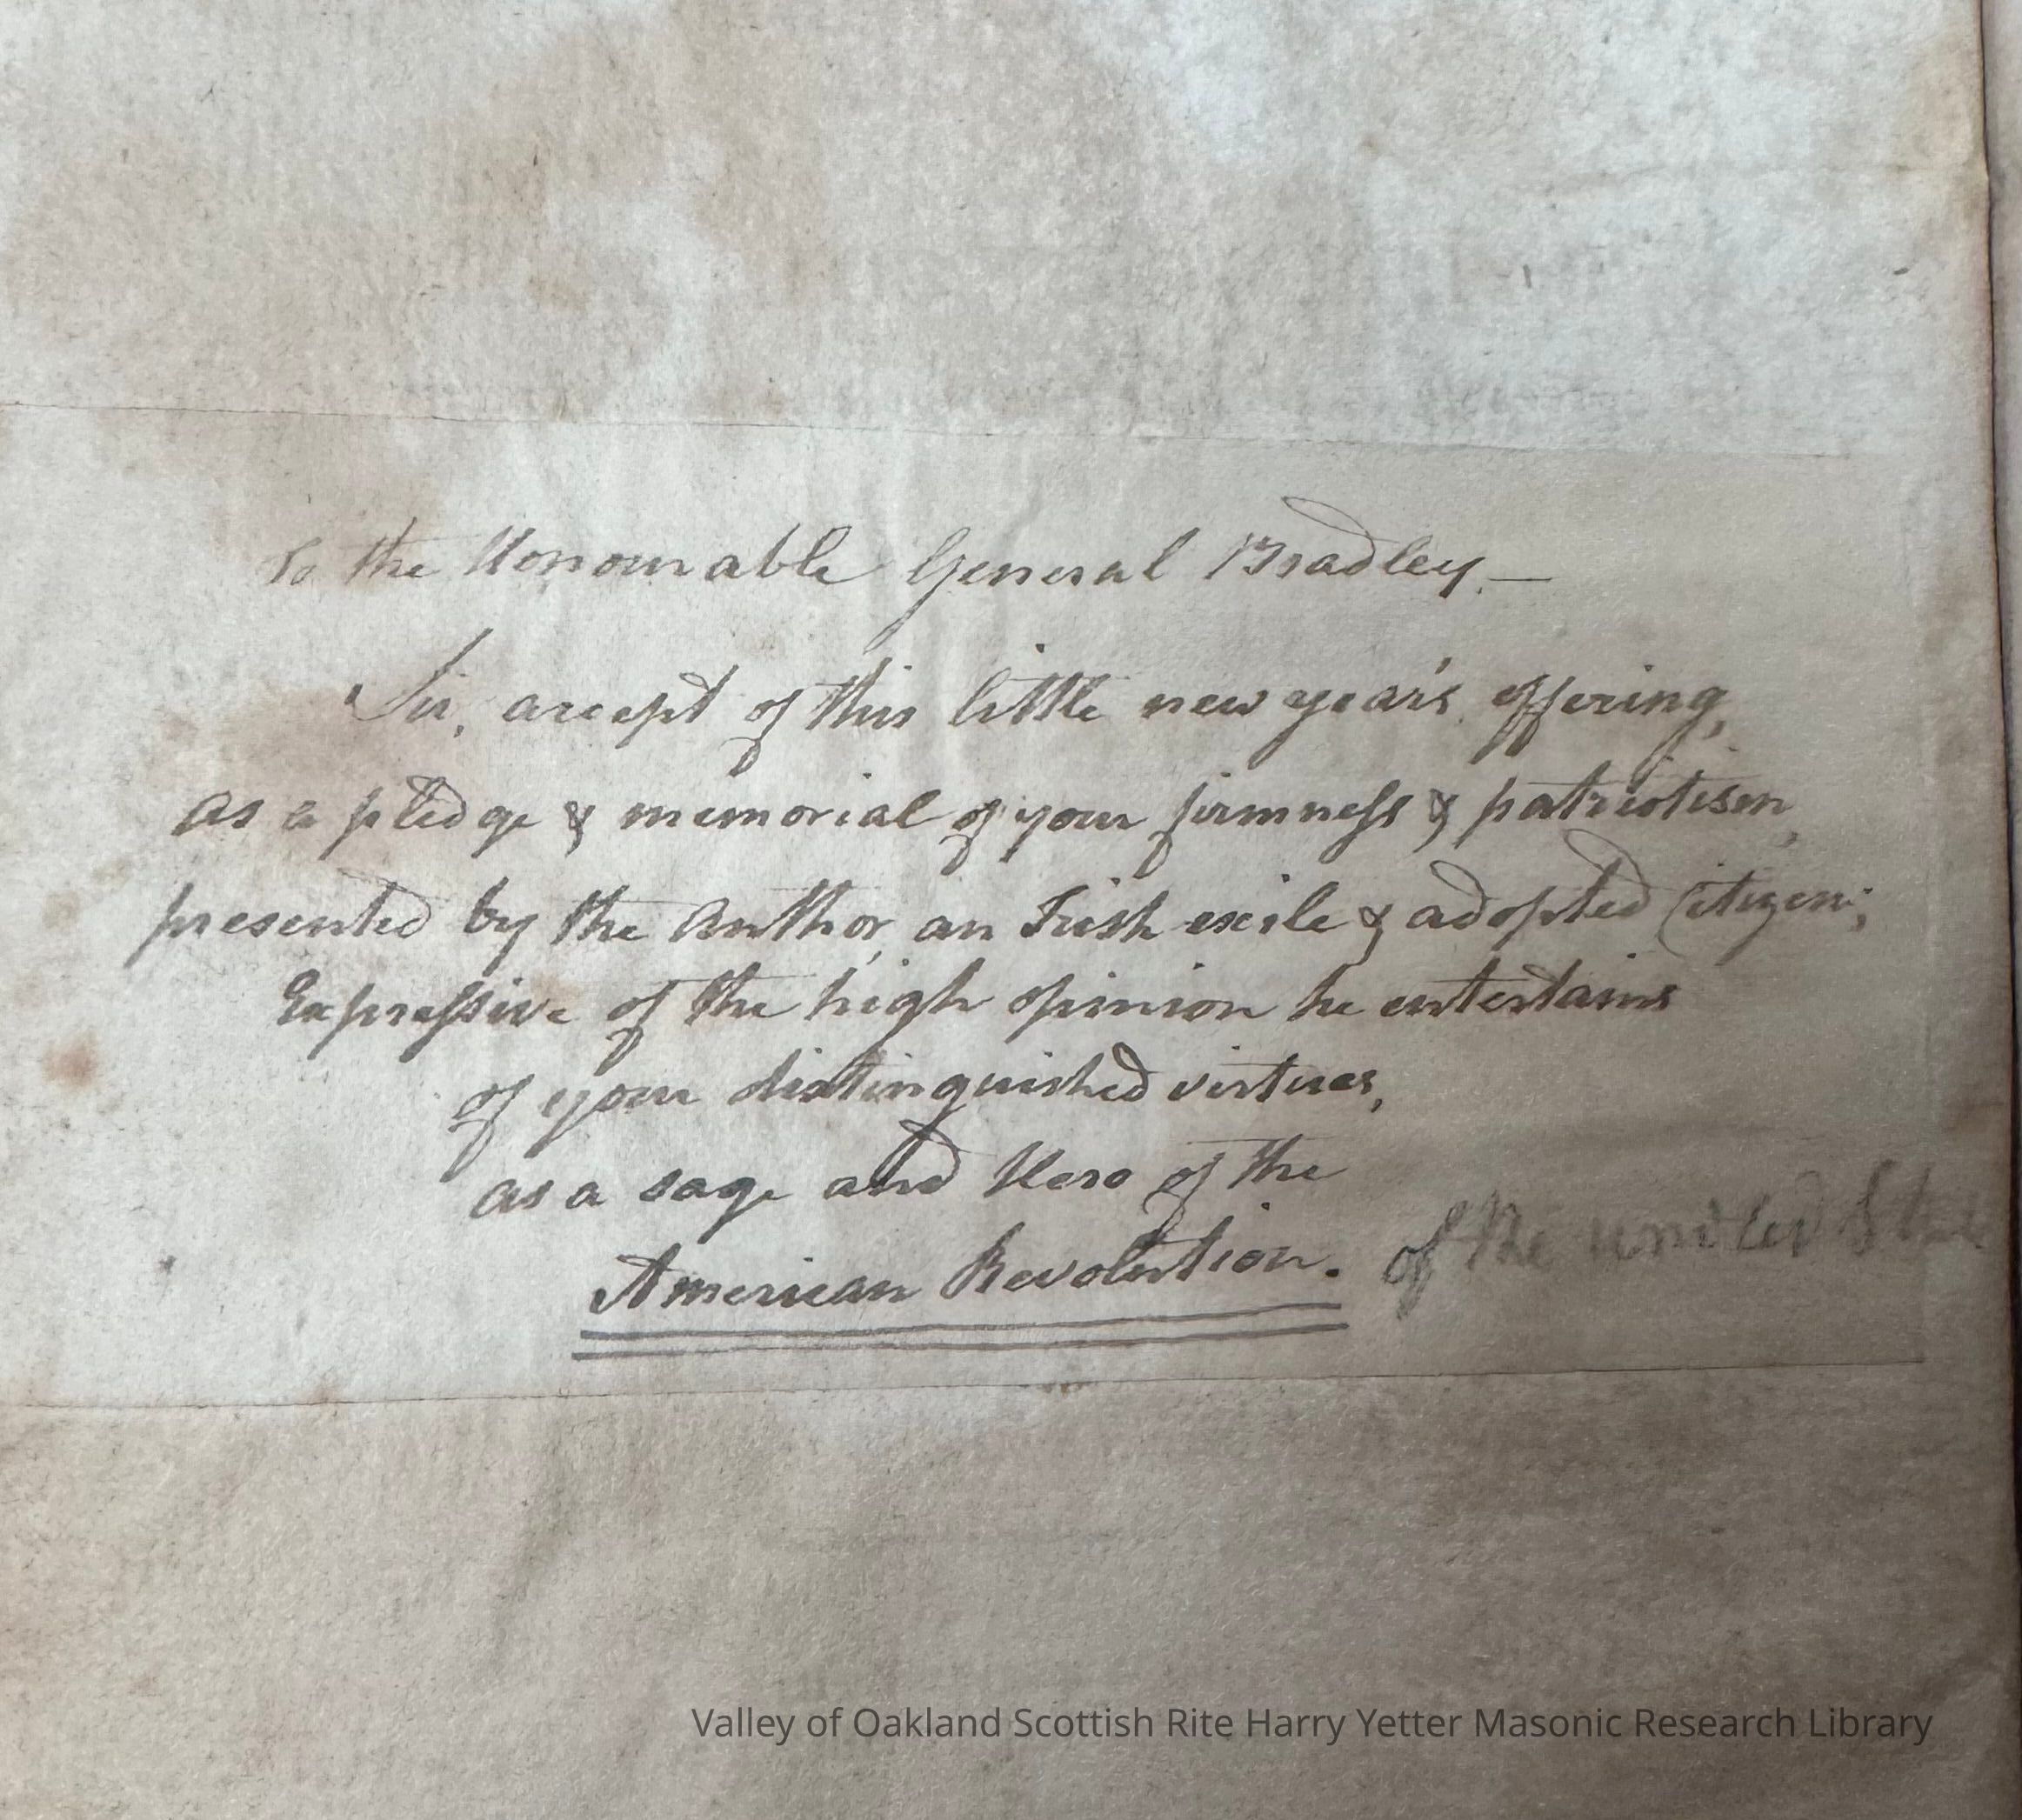 To the Honourable General Bradley.—
Sir, accept of this little new year's offering,
as a pledge & memorial of your firmness & patriotism,
presented by the Author, an Irish exile & adopted Citizen;
Expressive of the high opinion he entertains
of your distinguished virtues,
as a sage and Hero of the
American Revolution. of the united
Valley of Oakland Scottish Rite Harry Yetter Masonic Research Library